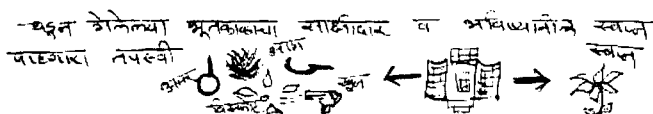 घडून गेलेल्या भूतकाळाचा साक्षीदार व भविष्यातील स्वप्न
पाहणारा तपस्वी
स्वप्न
आग
खून